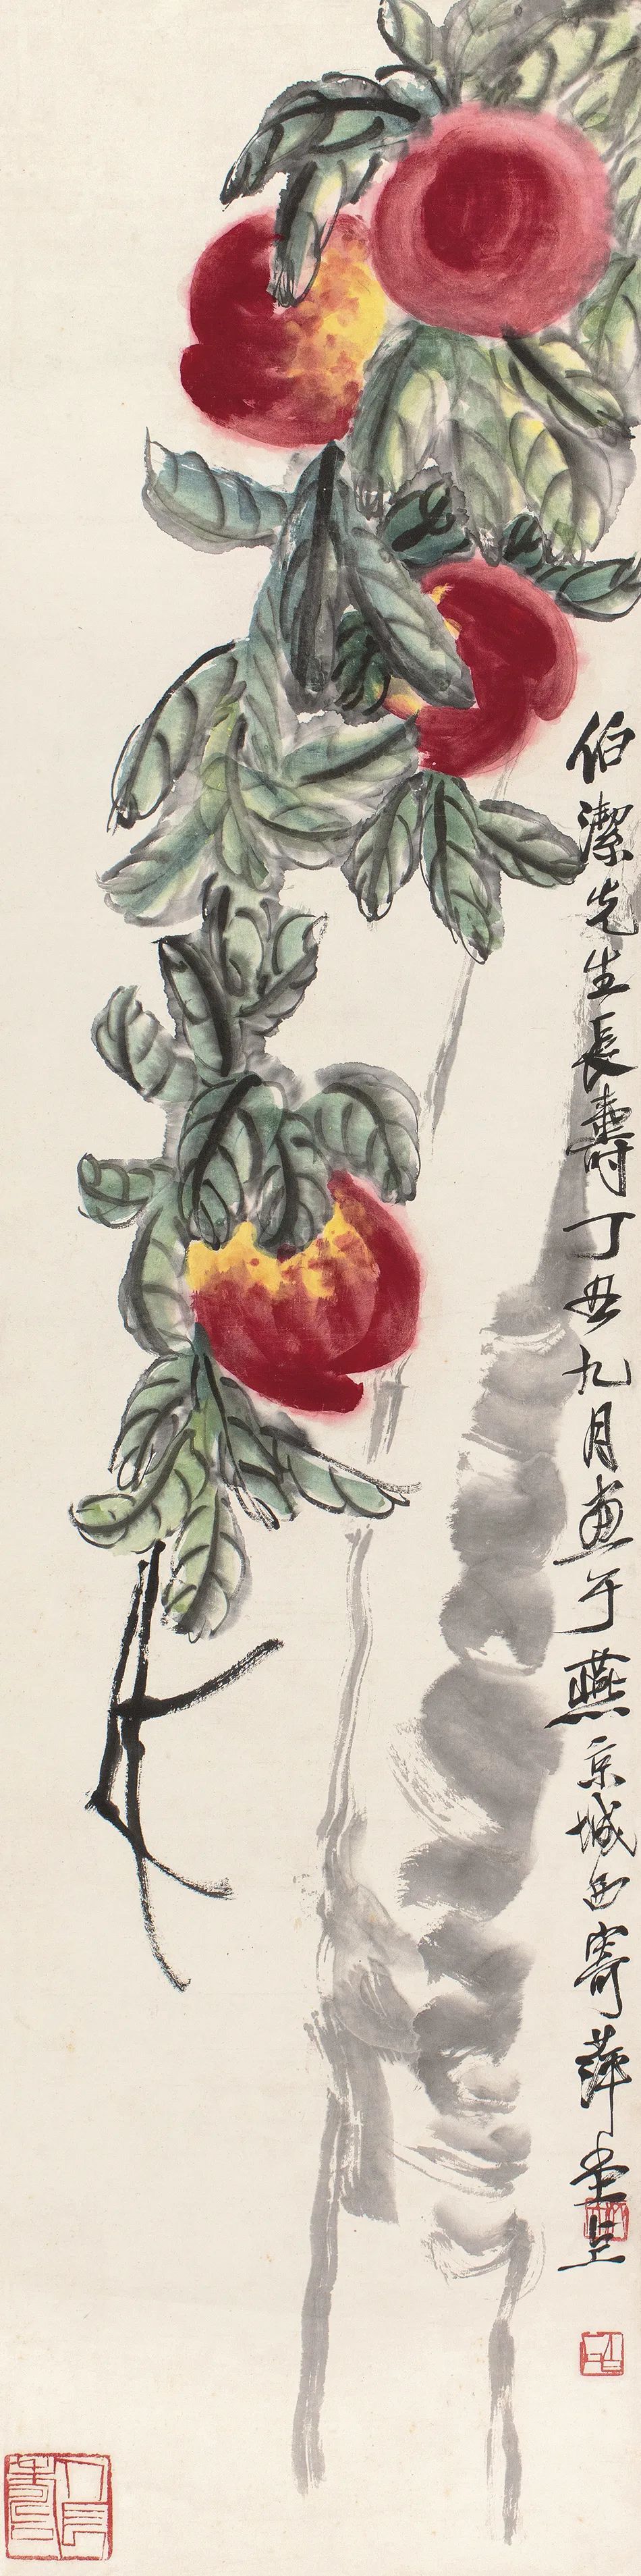 伯潔先生長壽丁丑九月畫于燕京城西寄萍堂